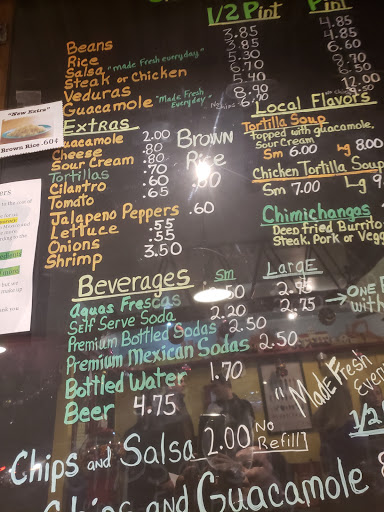 1/2 Pint Pint
Beans 3.85 4.85
Rice 3.85 4.85
Salsa "made Fresh everyday" 5.30 6.60
Steak or Chicken 6.70
Veduras 5.40
Guacamole "Made Fresh Everyday" 8.90 12.00
Extras
Guacamole 2.00
Cheese .80
Sour Cream .80
Tortillas .70
Cilantro .60
Tomato .65
Jalapeno Peppers .60
Lettuce .55
Onions .55
Shrimp 3.50
Brown
Rice
.60
"New Extra"
Brown Rice .60¢
Local Flavors
Tortilla Soup
topped with guacamole,
Sour Cream
Sm 6.00 Lg 8.00
Chicken Tortilla Soup
Sm 7.00 Lg
Chimichangas
Deep fried Burrito
Steak, Pork or
Beverages Sm Large
Aguas Frescas
Self Serve Soda 2.20 2.75 → One
with
Premium Bottled Sodas 2.50
Premium Mexican Sodas 2.50
Bottled Water 1.70
Beer 4.75
"Made Fresh
1/2
Chips and Salsa 2.00 No
Refill
Chips and Guacamole